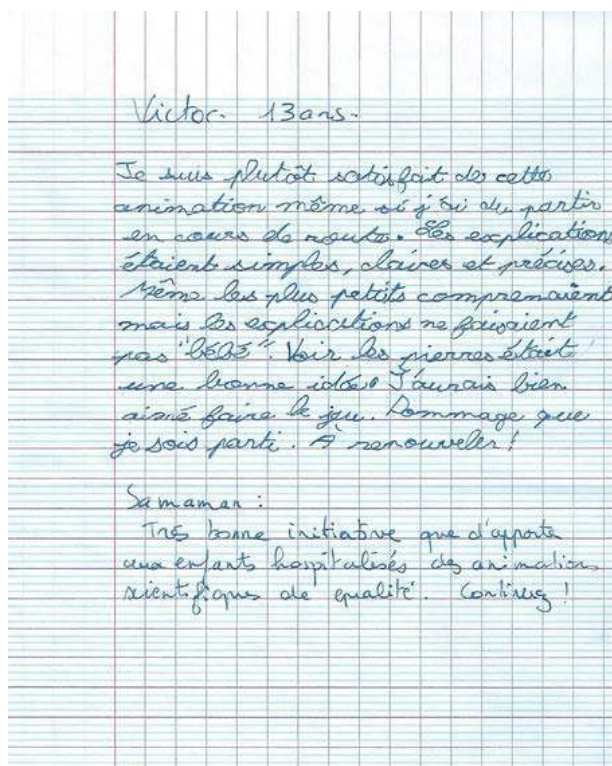 Victor. 13 ans.
Je suis plutôt satisfait de cette
animation même si j'ai du partir
en cours de route. Les explications
étaient simples, claires et précises.
Même les plus petits comprenaient
mais les explications ne faisaient
pas "bébé". Voir les pierres était
une bonne idée. J'aurais bien
aimé faire le jeu. Dommage que
je sois parti. A renouveler !
Sa maman :
Très bonne initiative que d'apporte
aux enfants hospitalisés des animations
scientifiques de qualité. Continuez !